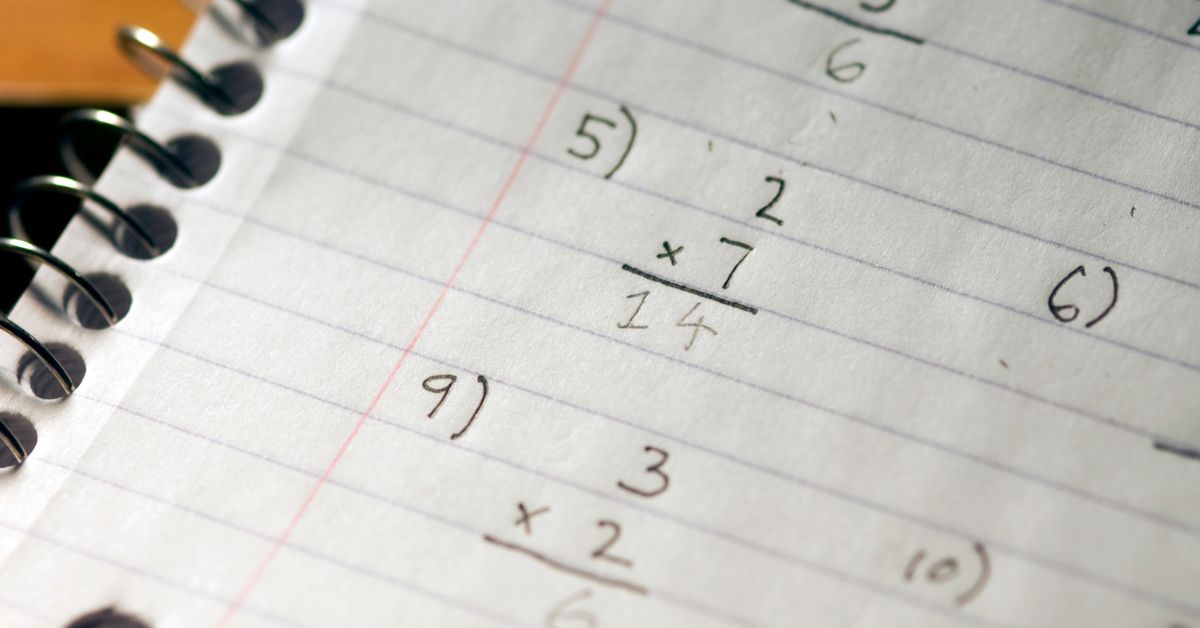 6
5)
2
× 7
14
6)
9)
3
× 2
6
10)